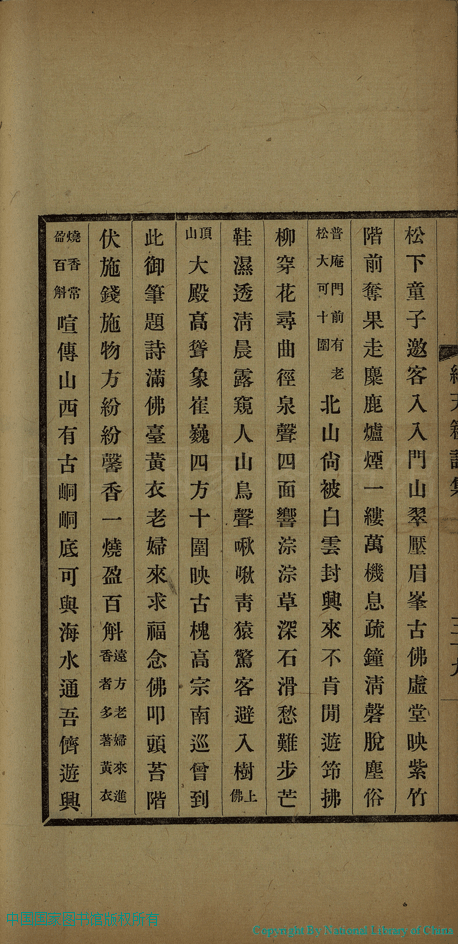 松下童子邀客入入門山翠壓眉峯古佛虛堂映紫竹
階前奪果走麋鹿爐煙一縷萬機息疏鐘淸磬脫塵俗
普庵門前有老松大可十圍北山尙被白雲封興來不肯閒遊筇拂
柳穿花尋曲徑泉聲四面響淙淙草深石滑愁難步芒
鞋濕透淸晨露窺人山鳥聲啾啾靑猿驚客避入樹上佛
頂山大殿高聳象崔巍四方十圍映古槐高宗南巡曾到
此御筆題詩滿佛臺黃衣老婦來求福念佛叩頭苔階
伏施錢施物方紛紛馨香一燒盈百斛遠方老婦來進香者多著黃衣
燒香常盈百斛喧傳山西有古峒峒底可與海水通吾儕遊興
Copyright By National Library of China